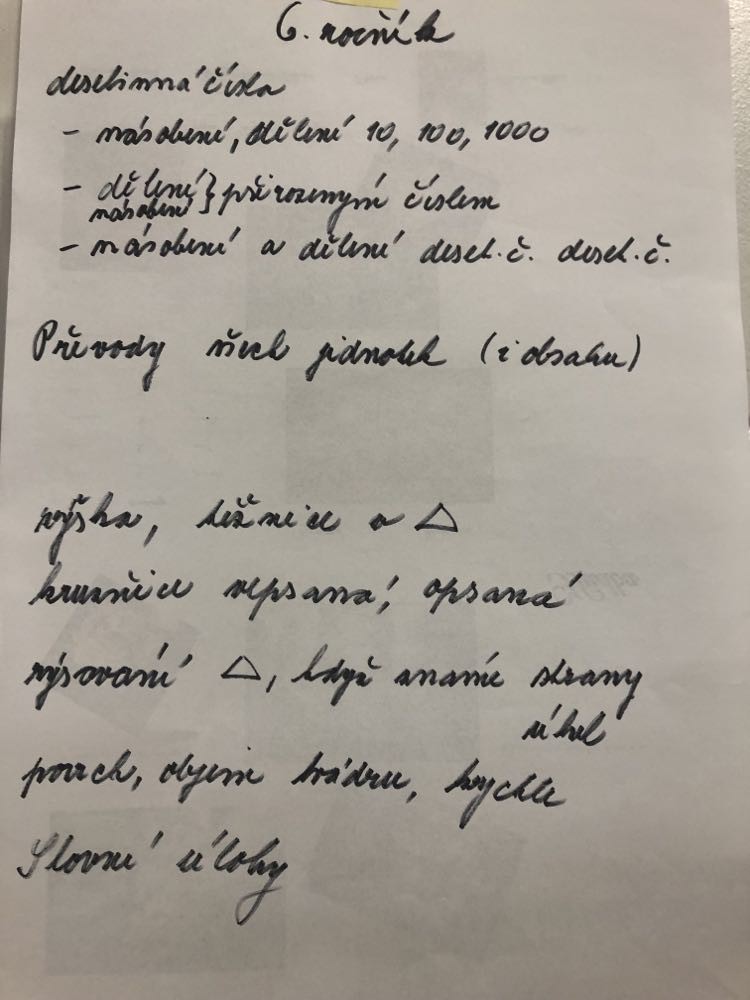 6. ročník
desetinná čísla
- násobení, dělení 10, 100, 1000
- dělení } přirozeným číslem
násobení
- násobení a dělení deset.č. deset.č.
Převody všech jednotek (i obsahu)
výška, těžnice v △
kružnice vepsaná, opsaná
rýsování △, když známe strany
úhel
povrch, objem kvádru, krychle
Slovní úlohy